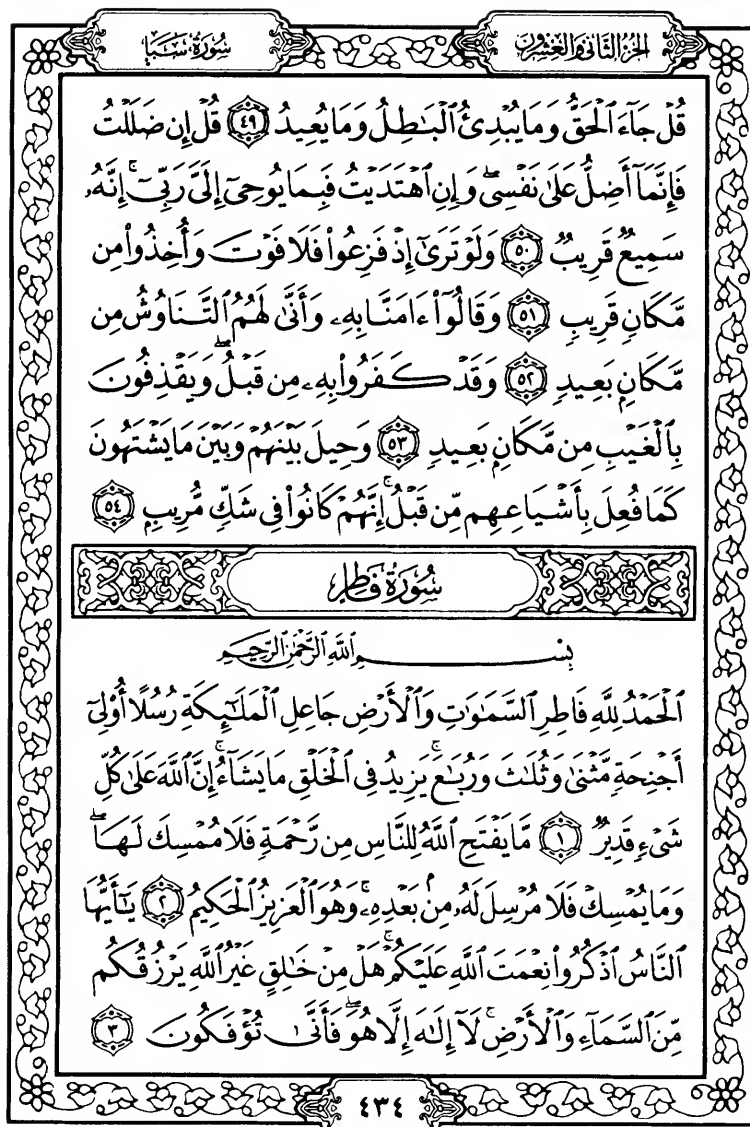 الجزء الثاني والعشرون
سُورَةُ سَبَإٍ
قُلْ جَآءَ ٱلْحَقُّ وَمَا يُبْدِئُ ٱلْبَٰطِلُ وَمَا يُعِيدُ ٤٩ قُلْ إِن ضَلَلْتُ
فَإِنَّمَآ أَضِلُّ عَلَىٰ نَفْسِىۖ وَإِنِ ٱهْتَدَيْتُ فَبِمَا يُوحِىٓ إِلَىَّ رَبِّىٓۚ إِنَّهُۥ
سَمِيعٌ قَرِيبٌ ٥٠ وَلَوْ تَرَىٰٓ إِذْ فَزِعُوا۟ فَلَا فَوْتَ وَأُخِذُوا۟ مِن
مَّكَانٍ قَرِيبٍ ٥١ وَقَالُوٓا۟ ءَامَنَّا بِهِۦ وَأَنَّىٰ لَهُمُ ٱلتَّنَاوُشُ مِن
مَّكَانٍۭ بَعِيدٍ ٥٢ وَقَدْ كَفَرُوا۟ بِهِۦ مِن قَبْلُۖ وَيَقْذِفُونَ
بِٱلْغَيْبِ مِن مَّكَانٍۭ بَعِيدٍ ٥٣ وَحِيلَ بَيْنَهُمْ وَبَيْنَ مَا يَشْتَهُونَ
كَمَا فُعِلَ بِأَشْيَاعِهِم مِّن قَبْلُۚ إِنَّهُمْ كَانُوا۟ فِى شَكٍّ مُّرِيبٍۭ ٥٤
سُورَةُ فَاطِرٍ
بِسْمِ ٱللَّهِ ٱلرَّحْمَٰنِ ٱلرَّحِيمِ
ٱلْحَمْدُ لِلَّهِ فَاطِرِ ٱلسَّمَٰوَٰتِ وَٱلْأَرْضِ جَاعِلِ ٱلْمَلَٰٓئِكَةِ رُسُلًا أُو۟لِىٓ
أَجْنِحَةٍ مَّثْنَىٰ وَثُلَٰثَ وَرُبَٰعَۚ يَزِيدُ فِى ٱلْخَلْقِ مَا يَشَآءُۚ إِنَّ ٱللَّهَ عَلَىٰ كُلِّ
شَىْءٍ قَدِيرٌ ١ مَّا يَفْتَحِ ٱللَّهُ لِلنَّاسِ مِن رَّحْمَةٍ فَلَا مُمْسِكَ لَهَاۖ
وَمَا يُمْسِكْ فَلَا مُرْسِلَ لَهُۥ مِنۢ بَعْدِهِۦۚ وَهُوَ ٱلْعَزِيزُ ٱلْحَكِيمُ ٢ يَٰٓأَيُّهَا
ٱلنَّاسُ ٱذْكُرُوا۟ نِعْمَتَ ٱللَّهِ عَلَيْكُمْۚ هَلْ مِنْ خَٰلِقٍ غَيْرُ ٱللَّهِ يَرْزُقُكُم
مِّنَ ٱلسَّمَآءِ وَٱلْأَرْضِۚ لَآ إِلَٰهَ إِلَّا هُوَۖ فَأَنَّىٰ تُؤْفَكُونَ ٣
٤٣٤